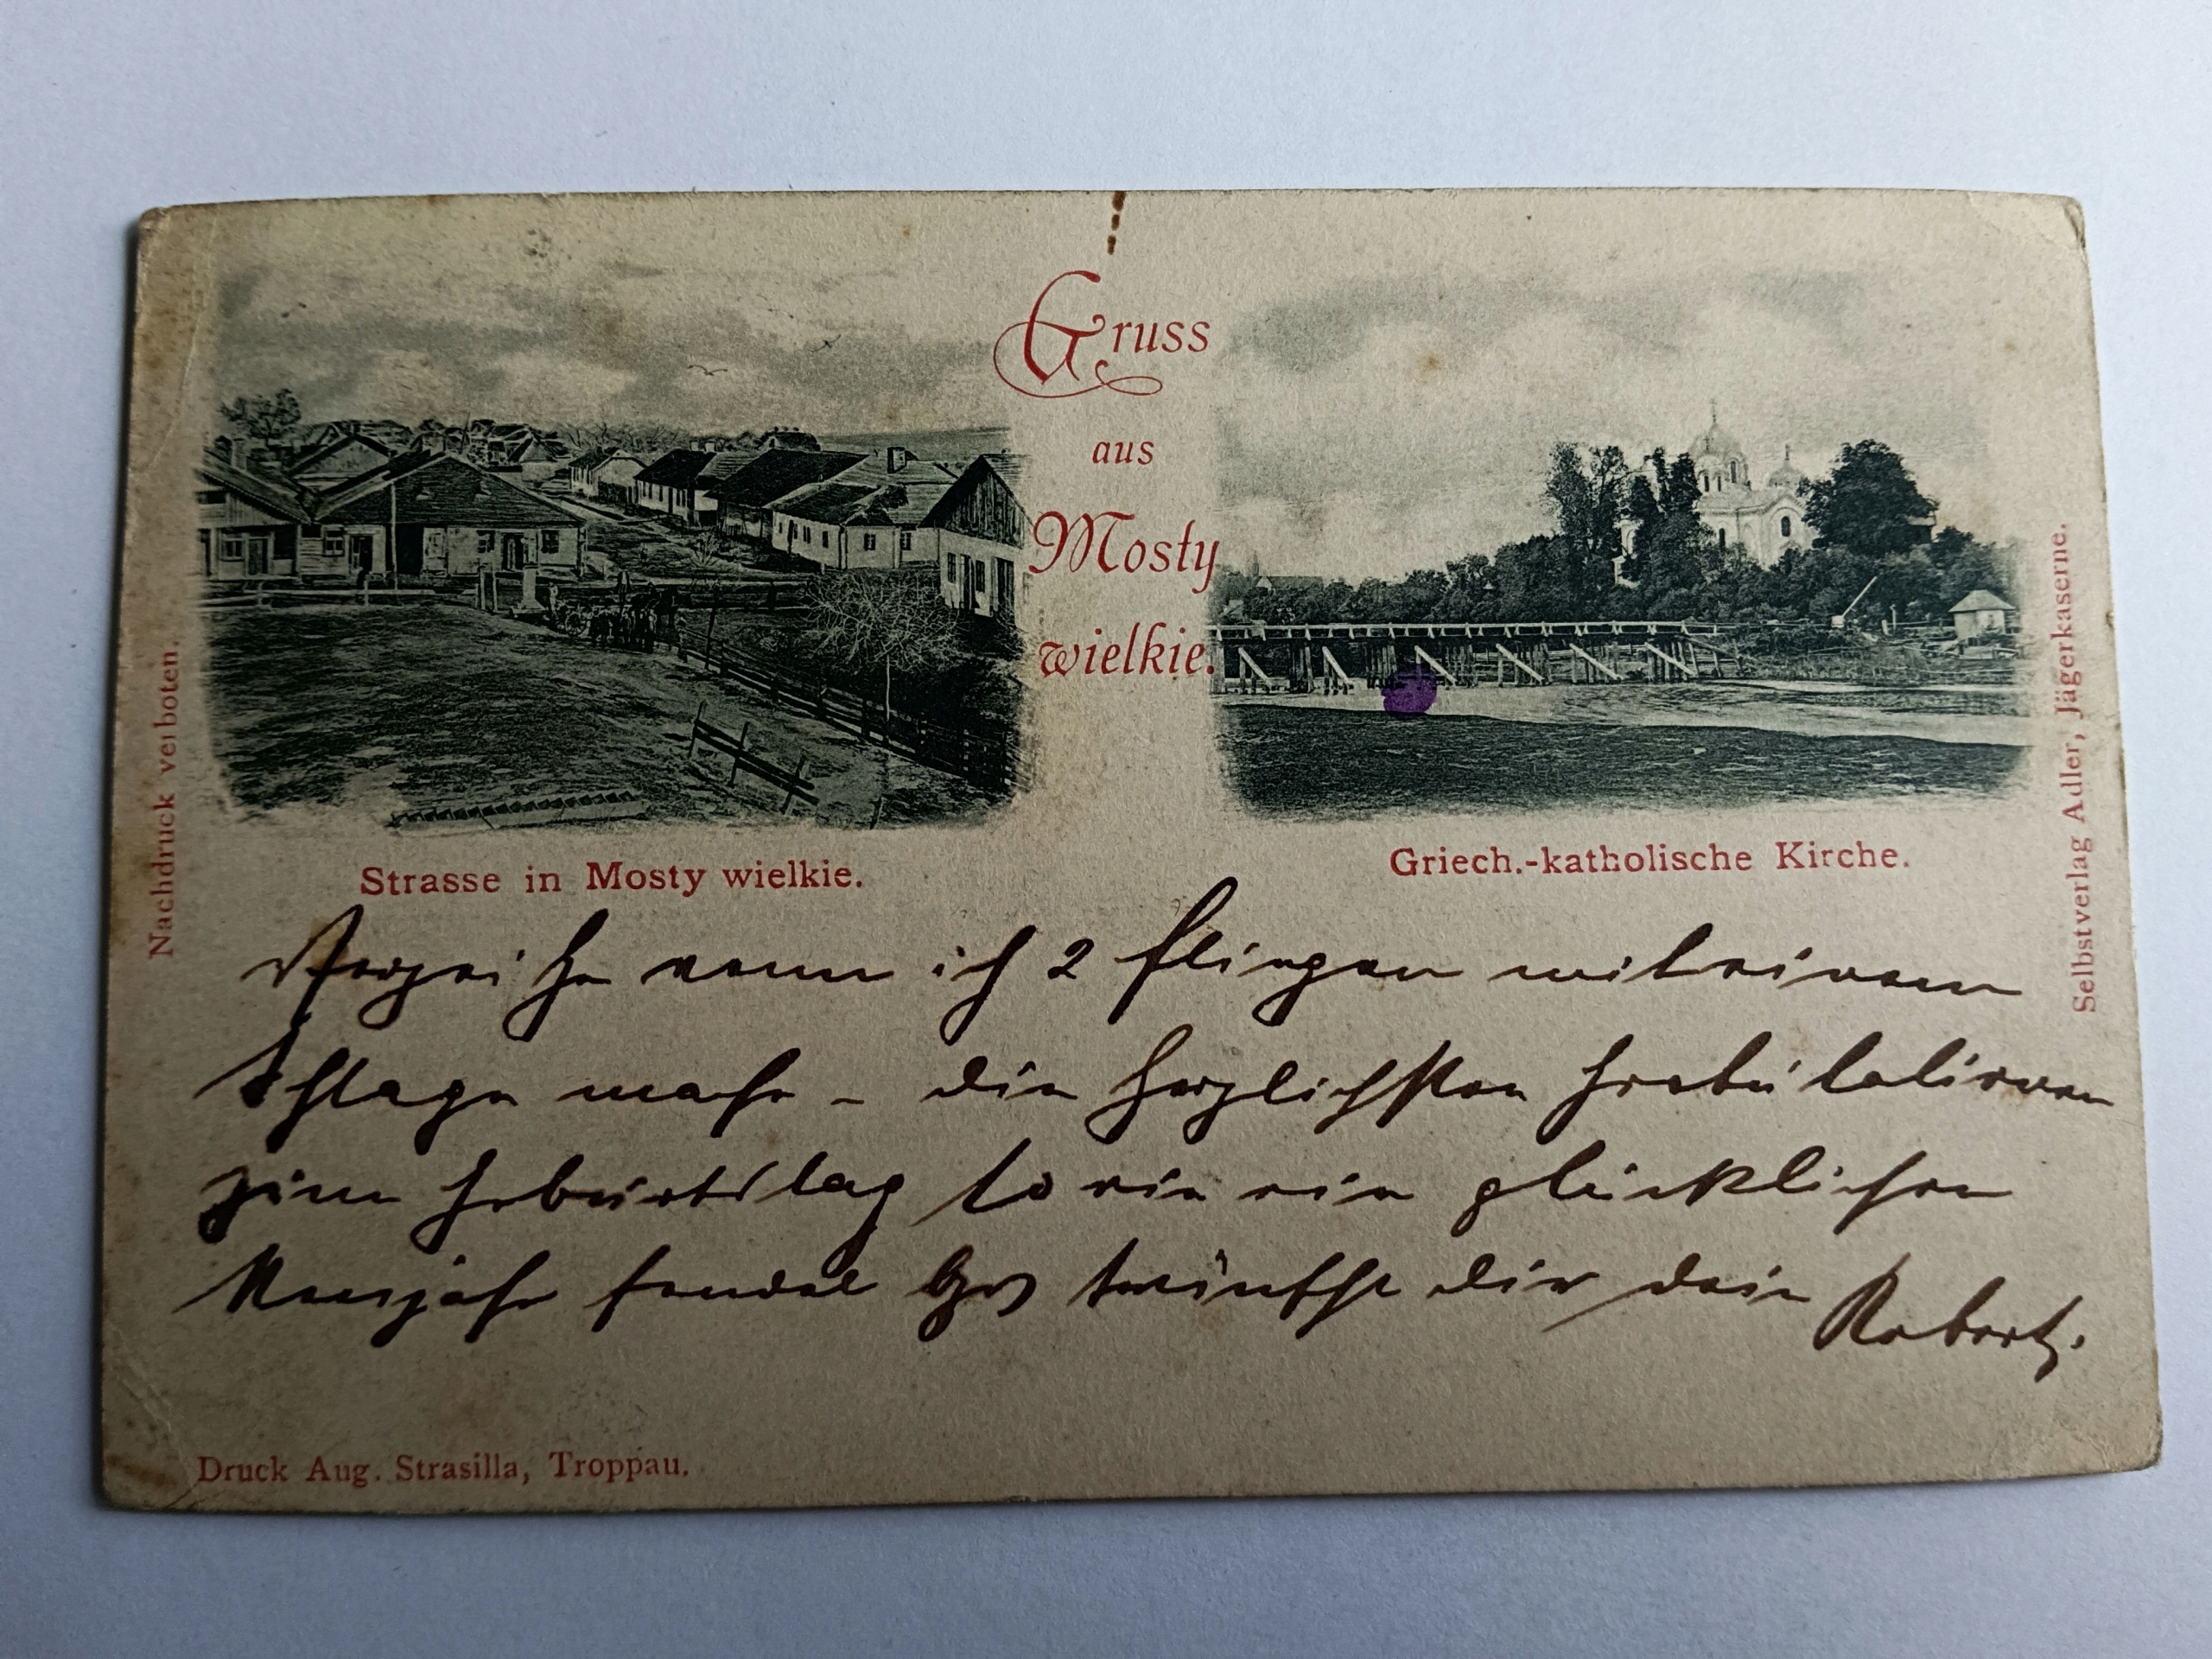 Gruss
aus
Mosty
wielkie.
Nachdruck verboten.
Strasse in Mosty wielkie.
Griech.-katholische Kirche.
Selbstverlag Adler, Jägerkaserne.
Verzeihe wenn ich 2 fliegen mit einem
Schlage mache – die herzlichsten Gratulationen
zum Geburtstag so wie ein glückliches
Neujahr sendet wünscht dir dein Robert.
Druck Aug. Strasilla, Troppau.